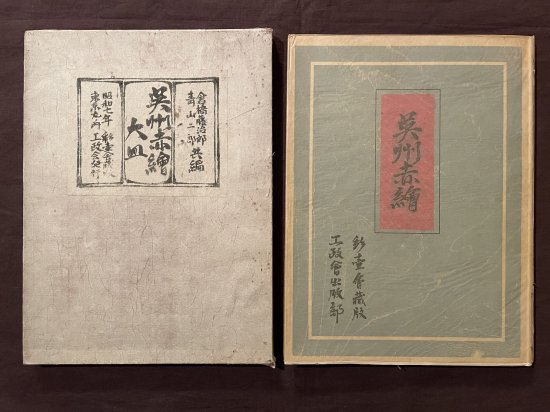 倉橋藤治郎
青山二郎 共編
呉州赤繪
大皿
昭和七年 彩壺會蔵版
東京丸ノ内 工政會発行
呉州赤繪
彩壺會蔵版
工政會出版部